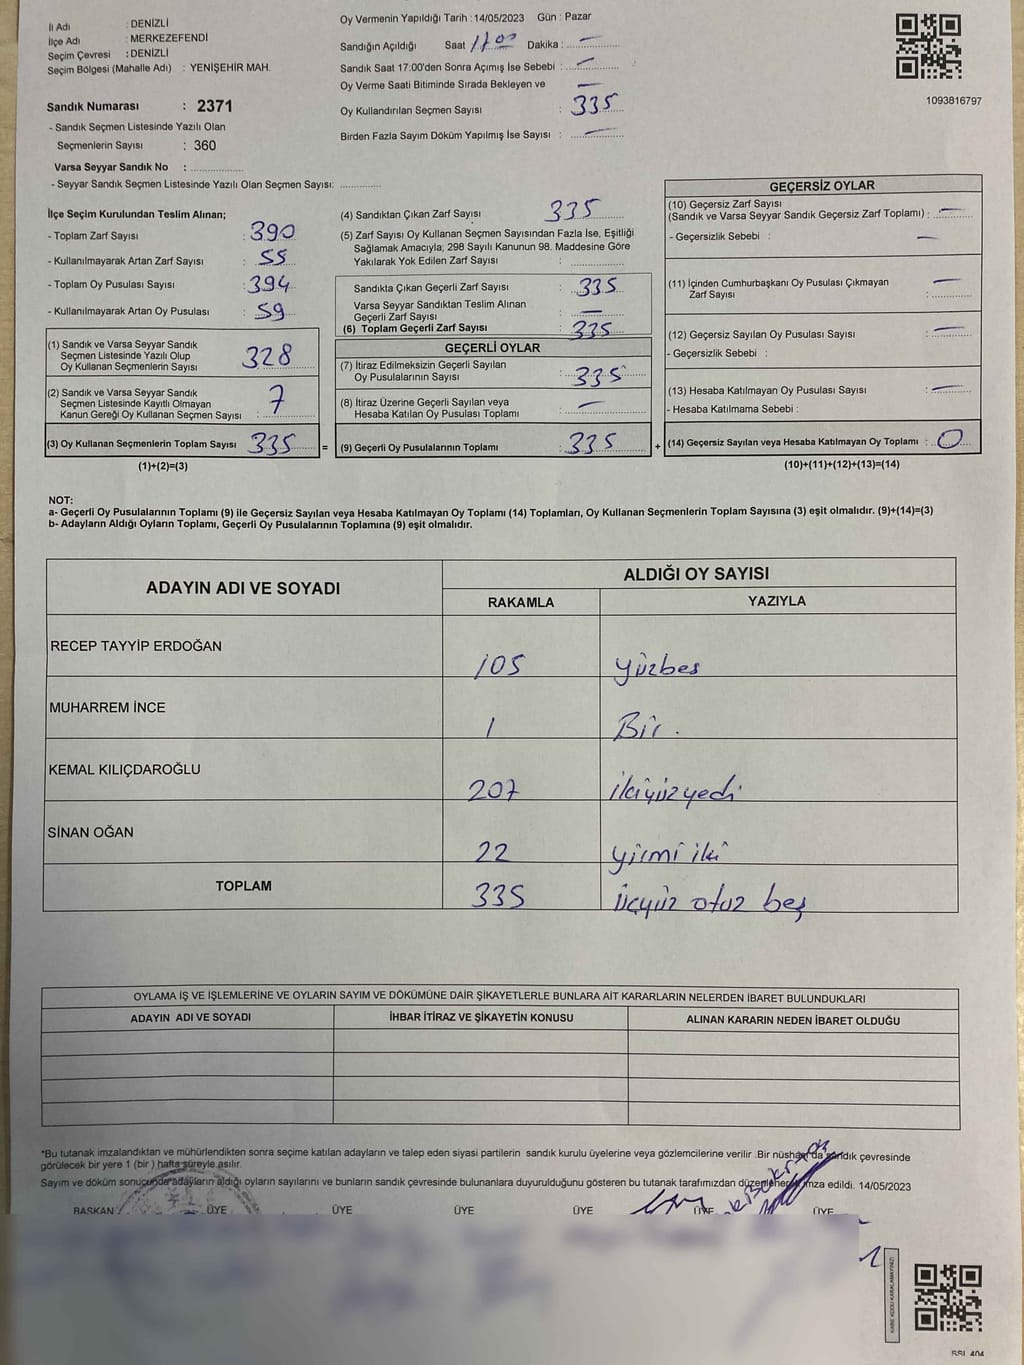 İl Adı : DENİZLİ
İlçe Adı : MERKEZEFENDİ
Seçim Çevresi : DENİZLİ
Seçim Bölgesi (Mahalle Adı) : YENİŞEHİR MAH.
Sandık Numarası : 2371
- Sandık Seçmen Listesinde Yazılı Olan
Seçmenlerin Sayısı : 360
Varsa Seyyar Sandık No : ..................
- Seyyar Sandık Seçmen Listesinde Yazılı Olan Seçmen Sayısı: .............
Oy Vermenin Yapıldığı Tarih : 14/05/2023 Gün : Pazar
Sandığın Açıldığı Saat 17.00 Dakika : —
Sandık Saat 17:00'den Sonra Açımış İse Sebebi : —
Oy Verme Saati Bitiminde Sırada Bekleyen ve —
Oy Kullandırılan Seçmen Sayısı : 335
Birden Fazla Sayım Döküm Yapılmış İse Sayısı : —
1093816797
İlçe Seçim Kurulundan Teslim Alınan;
- Toplam Zarf Sayısı : 390
- Kullanılmayarak Artan Zarf Sayısı : 55
- Toplam Oy Pusulası Sayısı : 394
- Kullanılmayarak Artan Oy Pusulası : 59
(1) Sandık ve Varsa Seyyar Sandık
Seçmen Listesinde Yazılı Olup
Oy Kullanan Seçmenlerin Sayısı : 328
(2) Sandık ve Varsa Seyyar Sandık
Seçmen Listesinde Kayıtlı Olmayan
Kanun Gereği Oy Kullanan Seçmen Sayısı : 7
(3) Oy Kullanan Seçmenlerin Toplam Sayısı : 335 =
(1)+(2)=(3)
(4) Sandıktan Çıkan Zarf Sayısı : 335
(5) Zarf Sayısı Oy Kullanan Seçmen Sayısından Fazla İse, Eşitliği
Sağlamak Amacıyla; 298 Sayılı Kanunun 98. Maddesine Göre
Yakılarak Yok Edilen Zarf Sayısı :
Sandıkta Çıkan Geçerli Zarf Sayısı : 335
Varsa Seyyar Sandıktan Teslim Alınan
Geçerli Zarf Sayısı : —
(6) Toplam Geçerli Zarf Sayısı : 335
GEÇERLİ OYLAR
(7) İtiraz Edilmeksizin Geçerli Sayılan
Oy Pusulalarının Sayısı : 335
(8) İtiraz Üzerine Geçerli Sayılan veya
Hesaba Katılan Oy Pusulası Toplamı : —
(9) Geçerli Oy Pusulalarının Toplamı : 335 +
GEÇERSİZ OYLAR
(10) Geçersiz Zarf Sayısı
(Sandık ve Varsa Seyyar Sandık Geçersiz Zarf Toplamı) : —
- Geçersizlik Sebebi : —
(11) İçinden Cumhurbaşkanı Oy Pusulası Çıkmayan —
Zarf Sayısı :
(12) Geçersiz Sayılan Oy Pusulası Sayısı : —
- Geçersizlik Sebebi :
(13) Hesaba Katılmayan Oy Pusulası Sayısı : —
- Hesaba Katılmama Sebebi :
(14) Geçersiz Sayılan veya Hesaba Katılmayan Oy Toplamı : 0
(10)+(11)+(12)+(13)=(14)
NOT:
a- Geçerli Oy Pusulalarının Toplamı (9) ile Geçersiz Sayılan veya Hesaba Katılmayan Oy Toplamı (14) Toplamları, Oy Kullanan Seçmenlerin Toplam Sayısına (3) eşit olmalıdır. (9)+(14)=(3)
b- Adayların Aldığı Oyların Toplamı, Geçerli Oy Pusulalarının Toplamına (9) eşit olmalıdır.
ADAYIN ADI VE SOYADI ALDIĞI OY SAYISI
RAKAMLA YAZIYLA
RECEP TAYYİP ERDOĞAN 105 Yüzbeş
MUHARREM İNCE 1 Bir.
KEMAL KILIÇDAROĞLU 207 ikiyüzyedi
SİNAN OĞAN 22 yirmi iki
TOPLAM 335 üçyüz otuz beş
OYLAMA İŞ VE İŞLEMLERİNE VE OYLARIN SAYIM VE DÖKÜMÜNE DAİR ŞİKAYETLERLE BUNLARA AİT KARARLARIN NELERDEN İBARET BULUNDUKLARI
ADAYIN ADI VE SOYADI İHBAR İTİRAZ VE ŞİKAYETİN KONUSU ALINAN KARARIN NEDEN İBARET OLDUĞU
*Bu tutanak imzalandıktan ve mühürlendikten sonra seçime katılan adayların ve talep eden siyasi partilerin sandık kurulu üyelerine veya gözlemcilerine verilir .Bir nüshası da sandık çevresinde
görülecek bir yere 1 (bir ) hafta süreyle asılır.
Sayım ve döküm sonucunda adayların aldığı oyların sayılarını ve bunların sandık çevresinde bulunanlara duyurulduğunu gösteren bu tutanak tarafımızdan düzenlenerek imza edildi. 14/05/2023
BAŞKAN ÜYE ÜYE ÜYE ÜYE ÜYE ÜYE